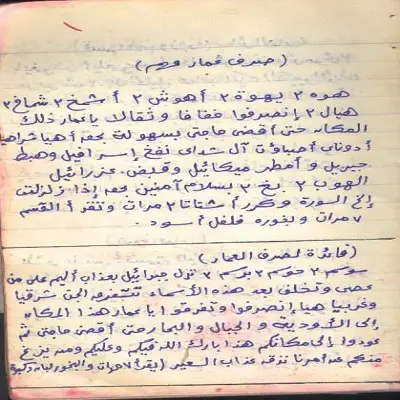 (صرف عمار وهم)
هوه ٢ يهوة ٢ أهوش ٢ أشمخ ٢ شماخ ٣
هيال ٢ إنصرفوا خفافا وثقالا ياعمار ذلك
المكان حتى أقضى حاجتى بسهولة بحق أهيا شراهيا
أدوناى أصباؤت آل شداى نفخ إسرافيل وهبط
جبريل وأمطر ميكائيل وقبض عزرائيل
الهوب ٢ بخ ٢ بسلام آمنين بحق إذا زلزلت
إلخ السورة وكرر أشتاتا ٢ مرات وتقرأ القسم
٧ مرات وبخوره فلفل أسود.
(فائدة لصرف العمار)
سوسم ٢ حوسم ٢ برسم ٢ نزل جبرائيل بعذاب أليم على من
عصى وتخلف بعد هذه الأسماء تفرقوا الجن شرقيا
وغربيا هيا إنصرفوا وتفرقوا ياعمار هذا المكان
إلى الأودية والجبال والبحار حتى أقضى حاجتى ثم
عودوا إلى مكانكم هذا بارك الله فيكم وعليكم ومن يزغ
منكم عن أمرنا نذقه عذاب السعير (يقرأ ٧ مرات والبخور لبان وكزبرة